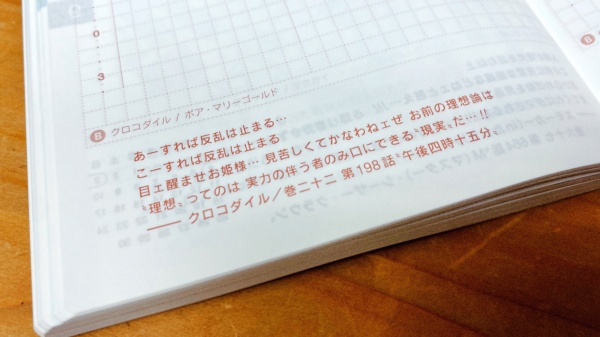 0
3
B クロコダイル / ボア・マリーゴールド /
B
あーすれば反乱は止まる…
こーすれば反乱は止まる
目ェ醒ませお姫様… 見苦しくてかなわねェぜ お前の理想論は
〝理想〟ってのは 実力の伴う者のみ口にできる〝現実〟だ…!!
―― クロコダイル／巻二十二 第198話〝午後四時十五分〟